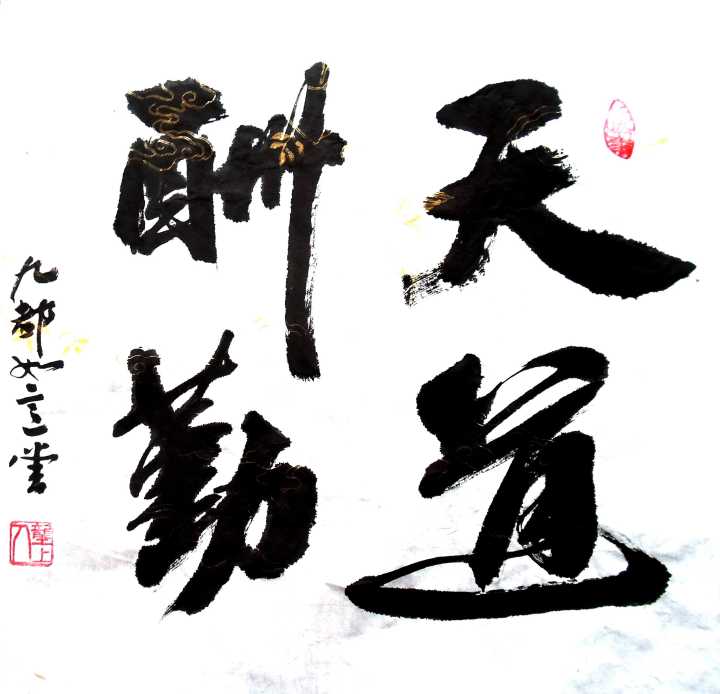 天道
酬勤
九都如意堂